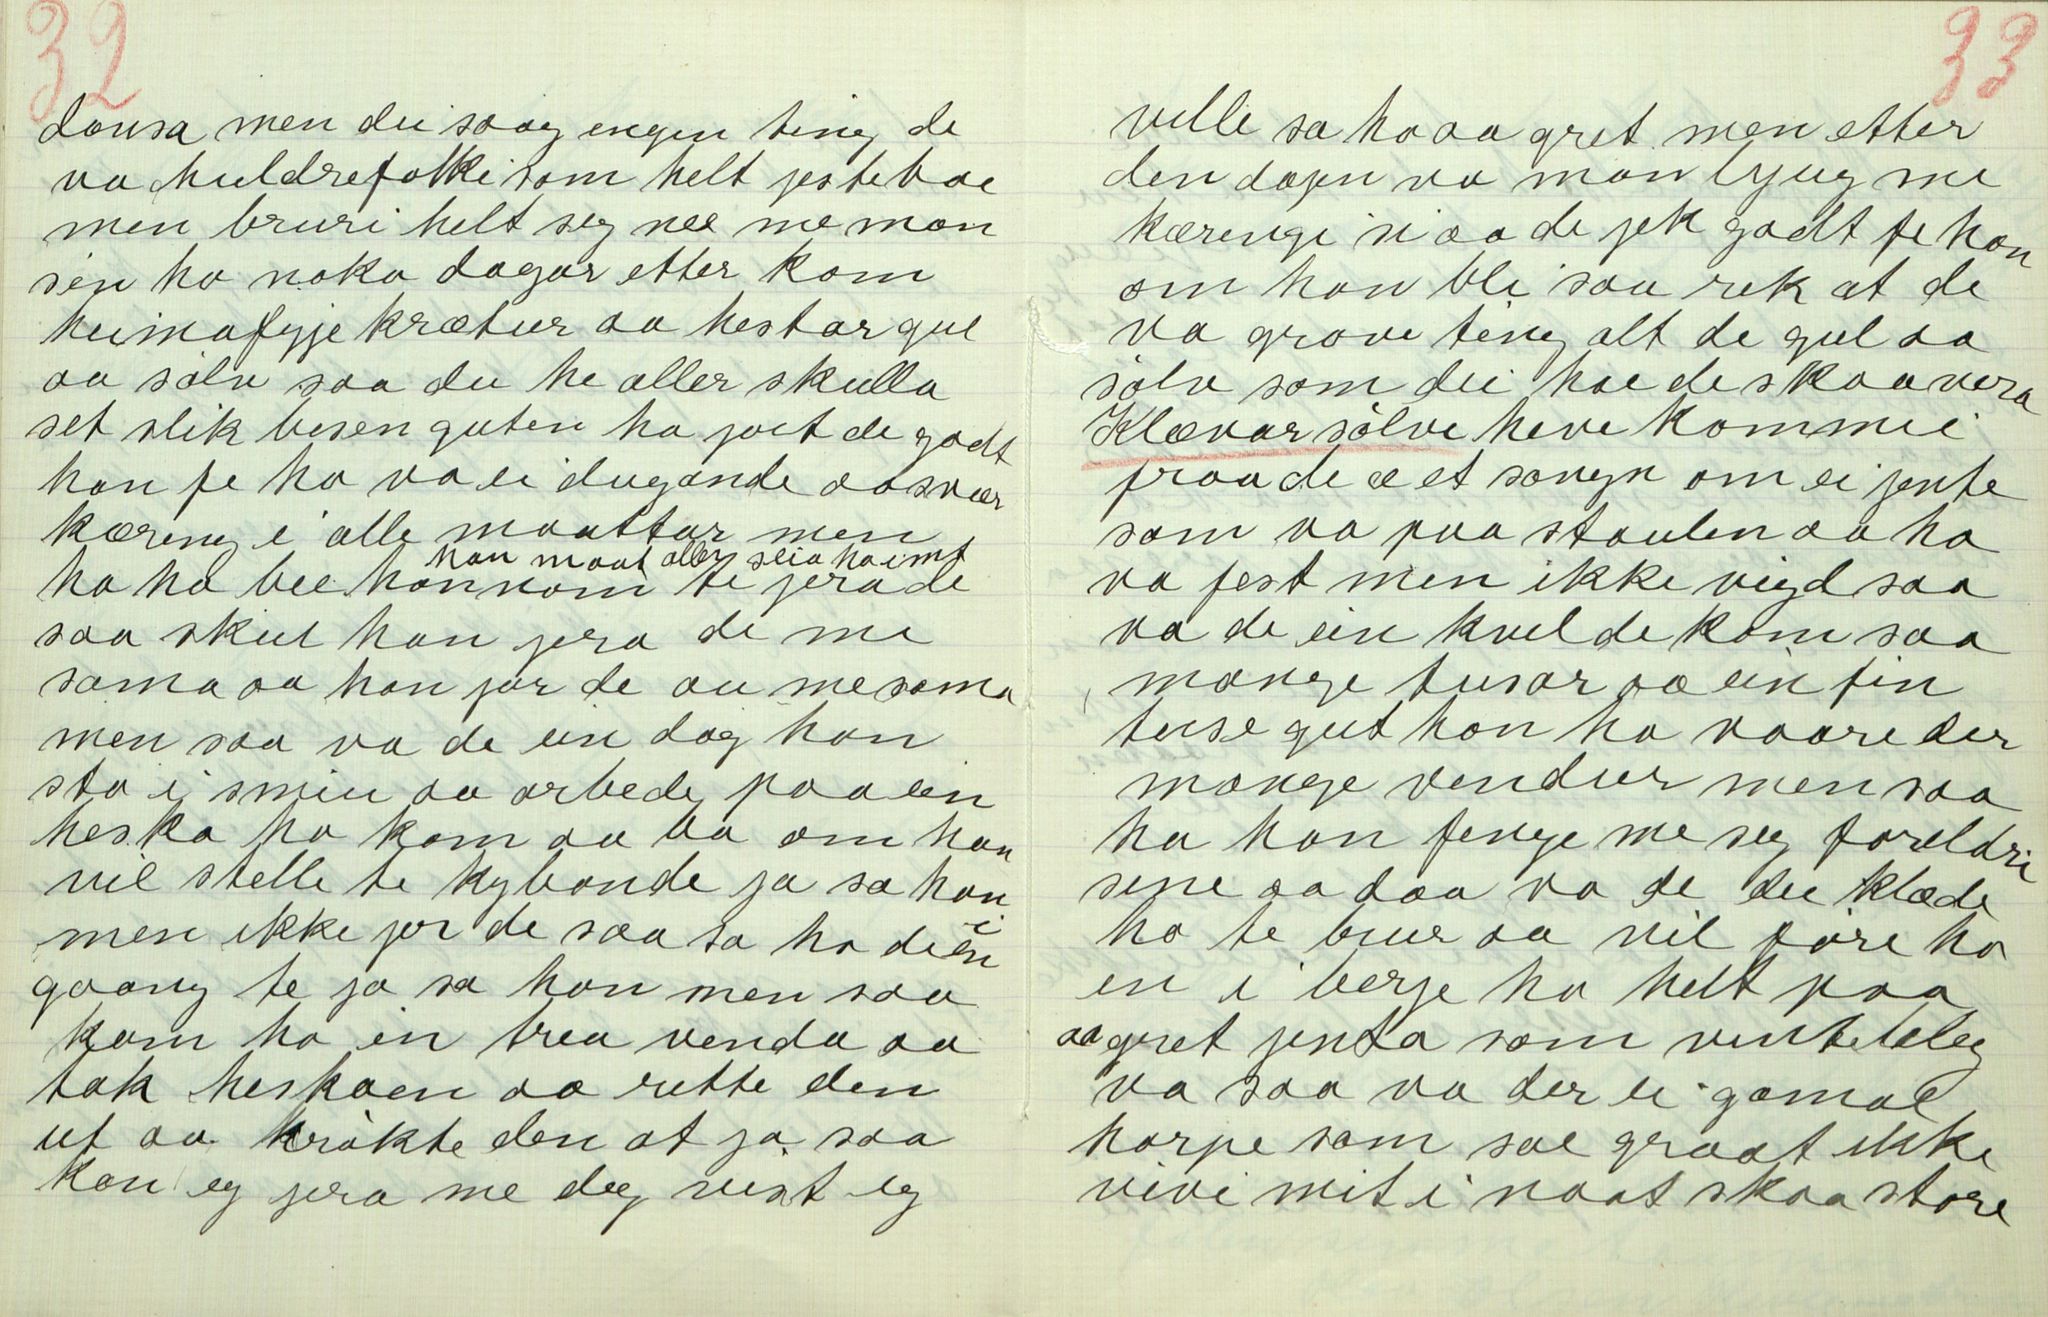 32
dansa men dei saag engen ting de
va huldrefolke som helt jestebae
men bruri helt seg nee me man
sen ha noko dagar etter kom
heimafyje krætur aa hestar gul
aa sølv saa du he aller skulla
set slik besen guten ha jort de godt
han fe ho va ei dugande aa svær
kæreng i alle maattar men
han maat aller slia ho imt
ho ha bee honnom te jera de
saa skul han jera de me
sama aa han jor de au me sama
men saa va de ein dag han
sto i smiu aa arbede paa ein
hesko ho kom aa ba om han
vil stelle te kybonde ja sa han
men ikke jor de saa sa ho di ei en
gaang te ja sa han men saa
kom ho in trea venda aa
tok heskoen aa rette den
ut aa kråkte den at ja saa
kan eg jera me deg vist eg
33
ville sa ho aa gret men etter
den dagen va man bljug me
kærenge si aa de jek godt fe han
om han ble saa rek at de
va grove ting alt de gul aa
sølv som dei hae de skaa vera
Klævar sølve heve kommi i
fraa de æ et sangn om ei jente
som va paa staulen aa ho
va fest men ikke vigd saa
va de ein kvel de kom saa
mange tusar aa ein fin
tuse gut han ha vaare der
mange vendur men saa
ha han fenge me seg foreldri
sine aa daa va de dei klæde
ho te brur aa vil føre ho
en i berje ho helt paa
aa gret jenta som ventele leg
va saa va der ei gamal
harpe som sae graat ikke
vivi mit i naat skaa store